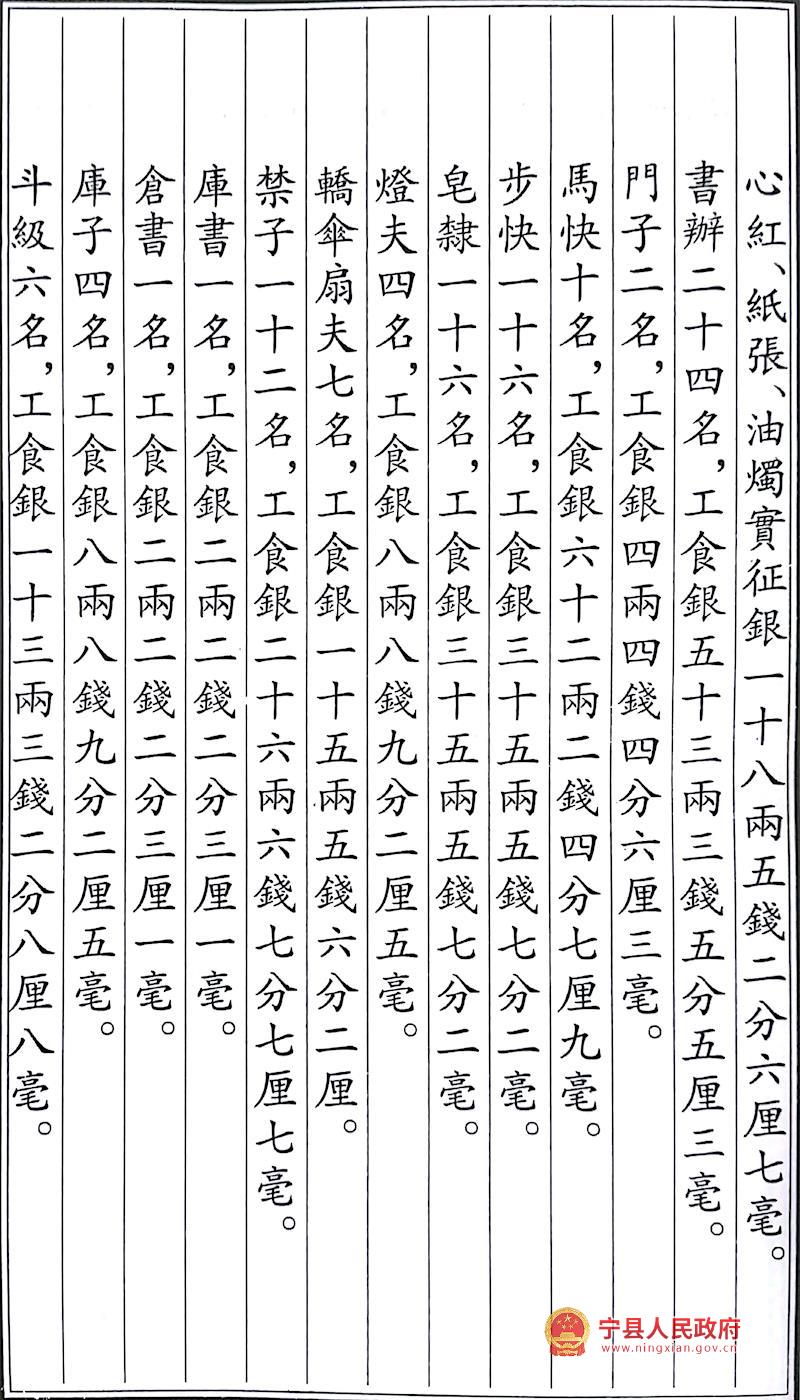 心紅、紙張、油燭實征銀一十八兩五錢二分六厘七毫。
書辦二十四名，工食銀五十三兩三錢五分五厘三毫。
門子二名，工食銀四兩四錢四分六厘三毫。
馬快十名，工食銀六十二兩二錢四分七厘九毫。
步快一十六名，工食銀三十五兩五錢七分二毫。
皂隸一十六名，工食銀三十五兩五錢七分二毫。
燈夫四名，工食銀八兩八錢九分二厘五毫。
轎傘扇夫七名，工食銀一十五兩五錢六分二厘。
禁子一十二名，工食銀二十六兩六錢七分七厘七毫。
庫書一名，工食銀二兩二錢二分三厘一毫。
倉書一名，工食銀二兩二錢二分三厘一毫。
庫子四名，工食銀八兩八錢九分二厘五毫。
斗級六名，工食銀一十三兩三錢二分八厘八毫。
宁县人民政府
www.ningxian.gov.cn